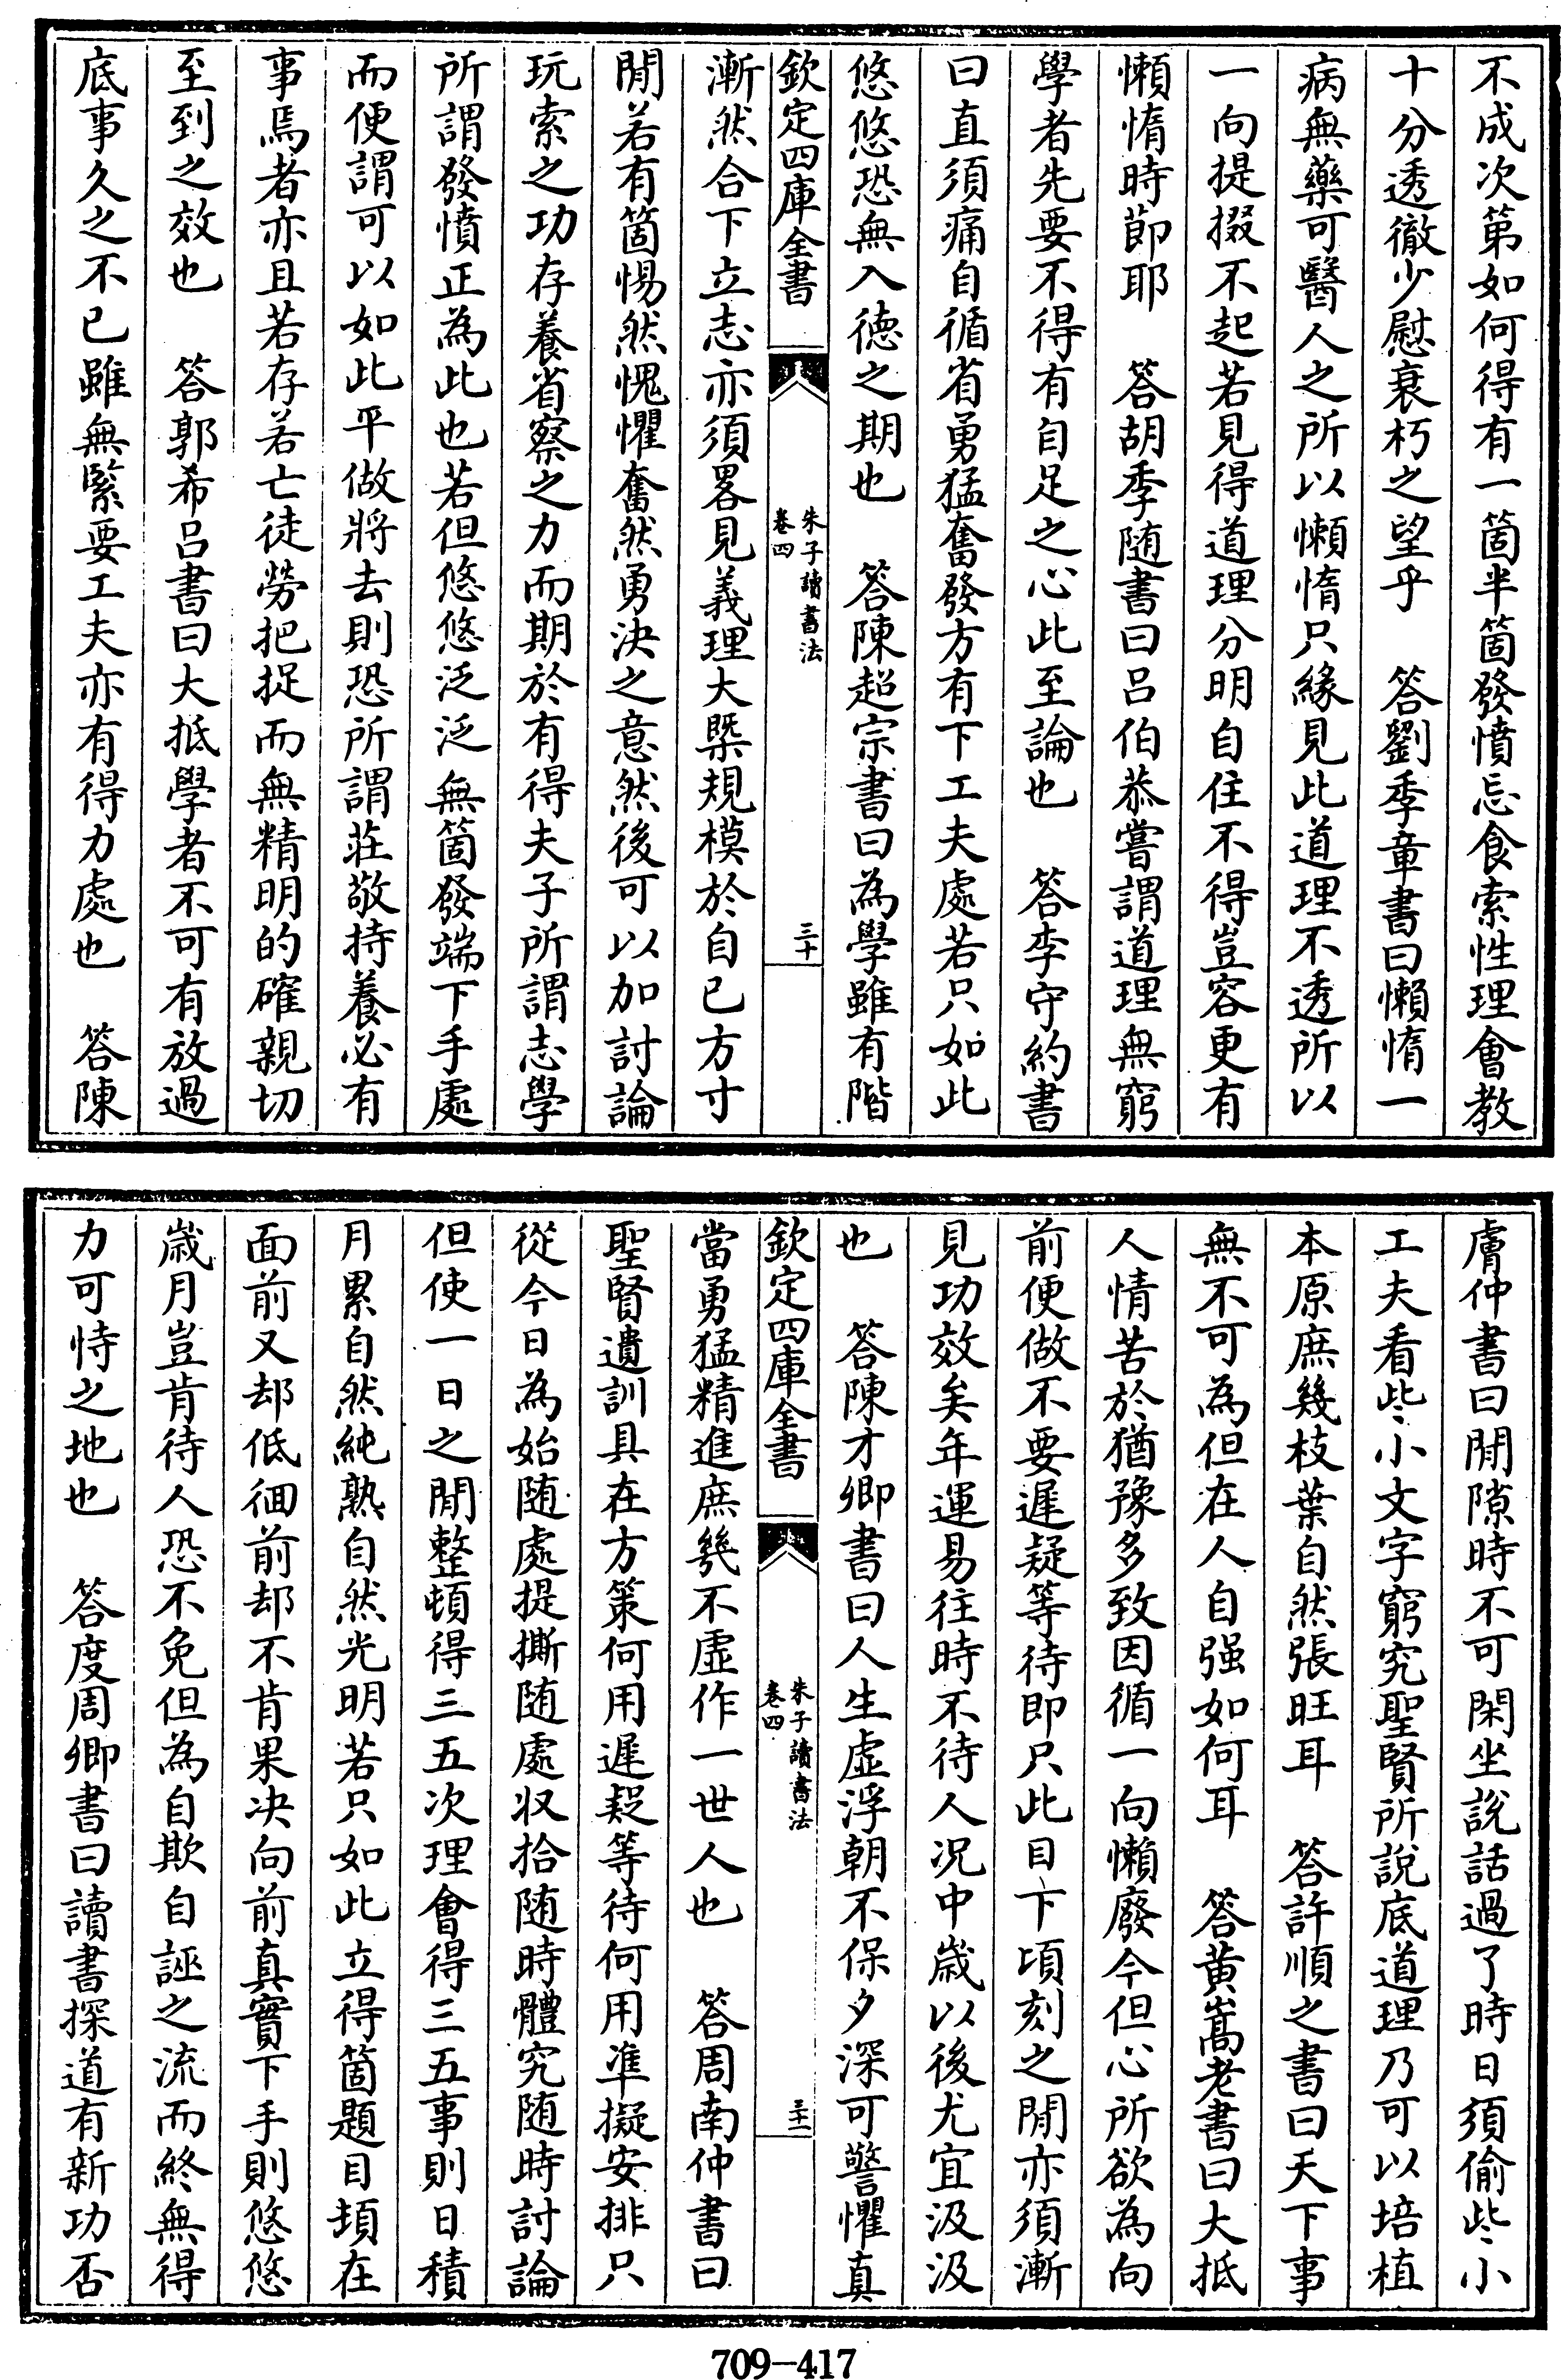 不成次第如何得有一箇半箇發憤忘食索性理會教
十分透徹少慰衰朽之望乎　答劉季章書曰懶惰一
病無藥可醫人之所以懶惰只緣見此道理不透所以
一向提掇不起若見得道理分明自住不得豈容更有
懶惰時節耶　答胡季随書曰呂伯恭嘗謂道理無窮
學者先要不得有自足之心此至論也　答李守約書
曰直須痛自循省勇猛奮發方有下工夫處若只如此
悠悠恐無入德之期也　答陳超宗書曰為學雖有階
欽定四庫全書
朱子讀書法
卷四
三十
漸然合下立志亦須畧見義理大槩規模於自己方寸
閒若有箇惕然愧懼奮然勇決之意然後可以加討論
玩索之功存養省察之力而期於有得夫子所謂志學
所謂發憤正為此也若但悠悠泛泛無箇發端下手處
而便謂可以如此平做將去則恐所謂莊敬持養必有
事焉者亦且若存若亡徒勞把捉而無精明的確親切
至到之效也　答郭希呂書曰大抵學者不可有放過
底事久之不已雖無緊要工夫亦有得力處也　答陳
膚仲書曰閒隙時不可閑坐說話過了時日須偷些小
工夫看些小文字窮究聖賢所說底道理乃可以培植
本原庶幾枝葉自然張旺耳　答許順之書曰天下事
無不可為但在人自强如何耳　答黄嵩老書曰大抵
人情苦於猶豫多致因循一向懶廢今但心所欲為向
前便做不要遲疑等待即只此目下頃刻之閒亦須漸
見功效矣年運易往時不待人况中歲以後尤宜汲汲
也　答陳才卿書曰人生虛浮朝不保夕深可警懼真
欽定四庫全書
朱子讀書法
卷四
三十一
當勇猛精進庶幾不虛作一世人也　答周南仲書曰
聖賢遺訓具在方策何用遲疑等待何用凖擬安排只
從今日為始随處提撕随處収拾随時體究随時討論
但使一日之閒整頓得三五次理會得三五事則日積
月累自然純熟自然光明若只如此立得箇題目頓在
面前又却低徊前却不肯果决向前真實下手則悠悠
歲月豈肯待人恐不免但為自欺自誣之流而終無得
力可恃之地也　答度周卿書曰讀書探道有新功否
709-417